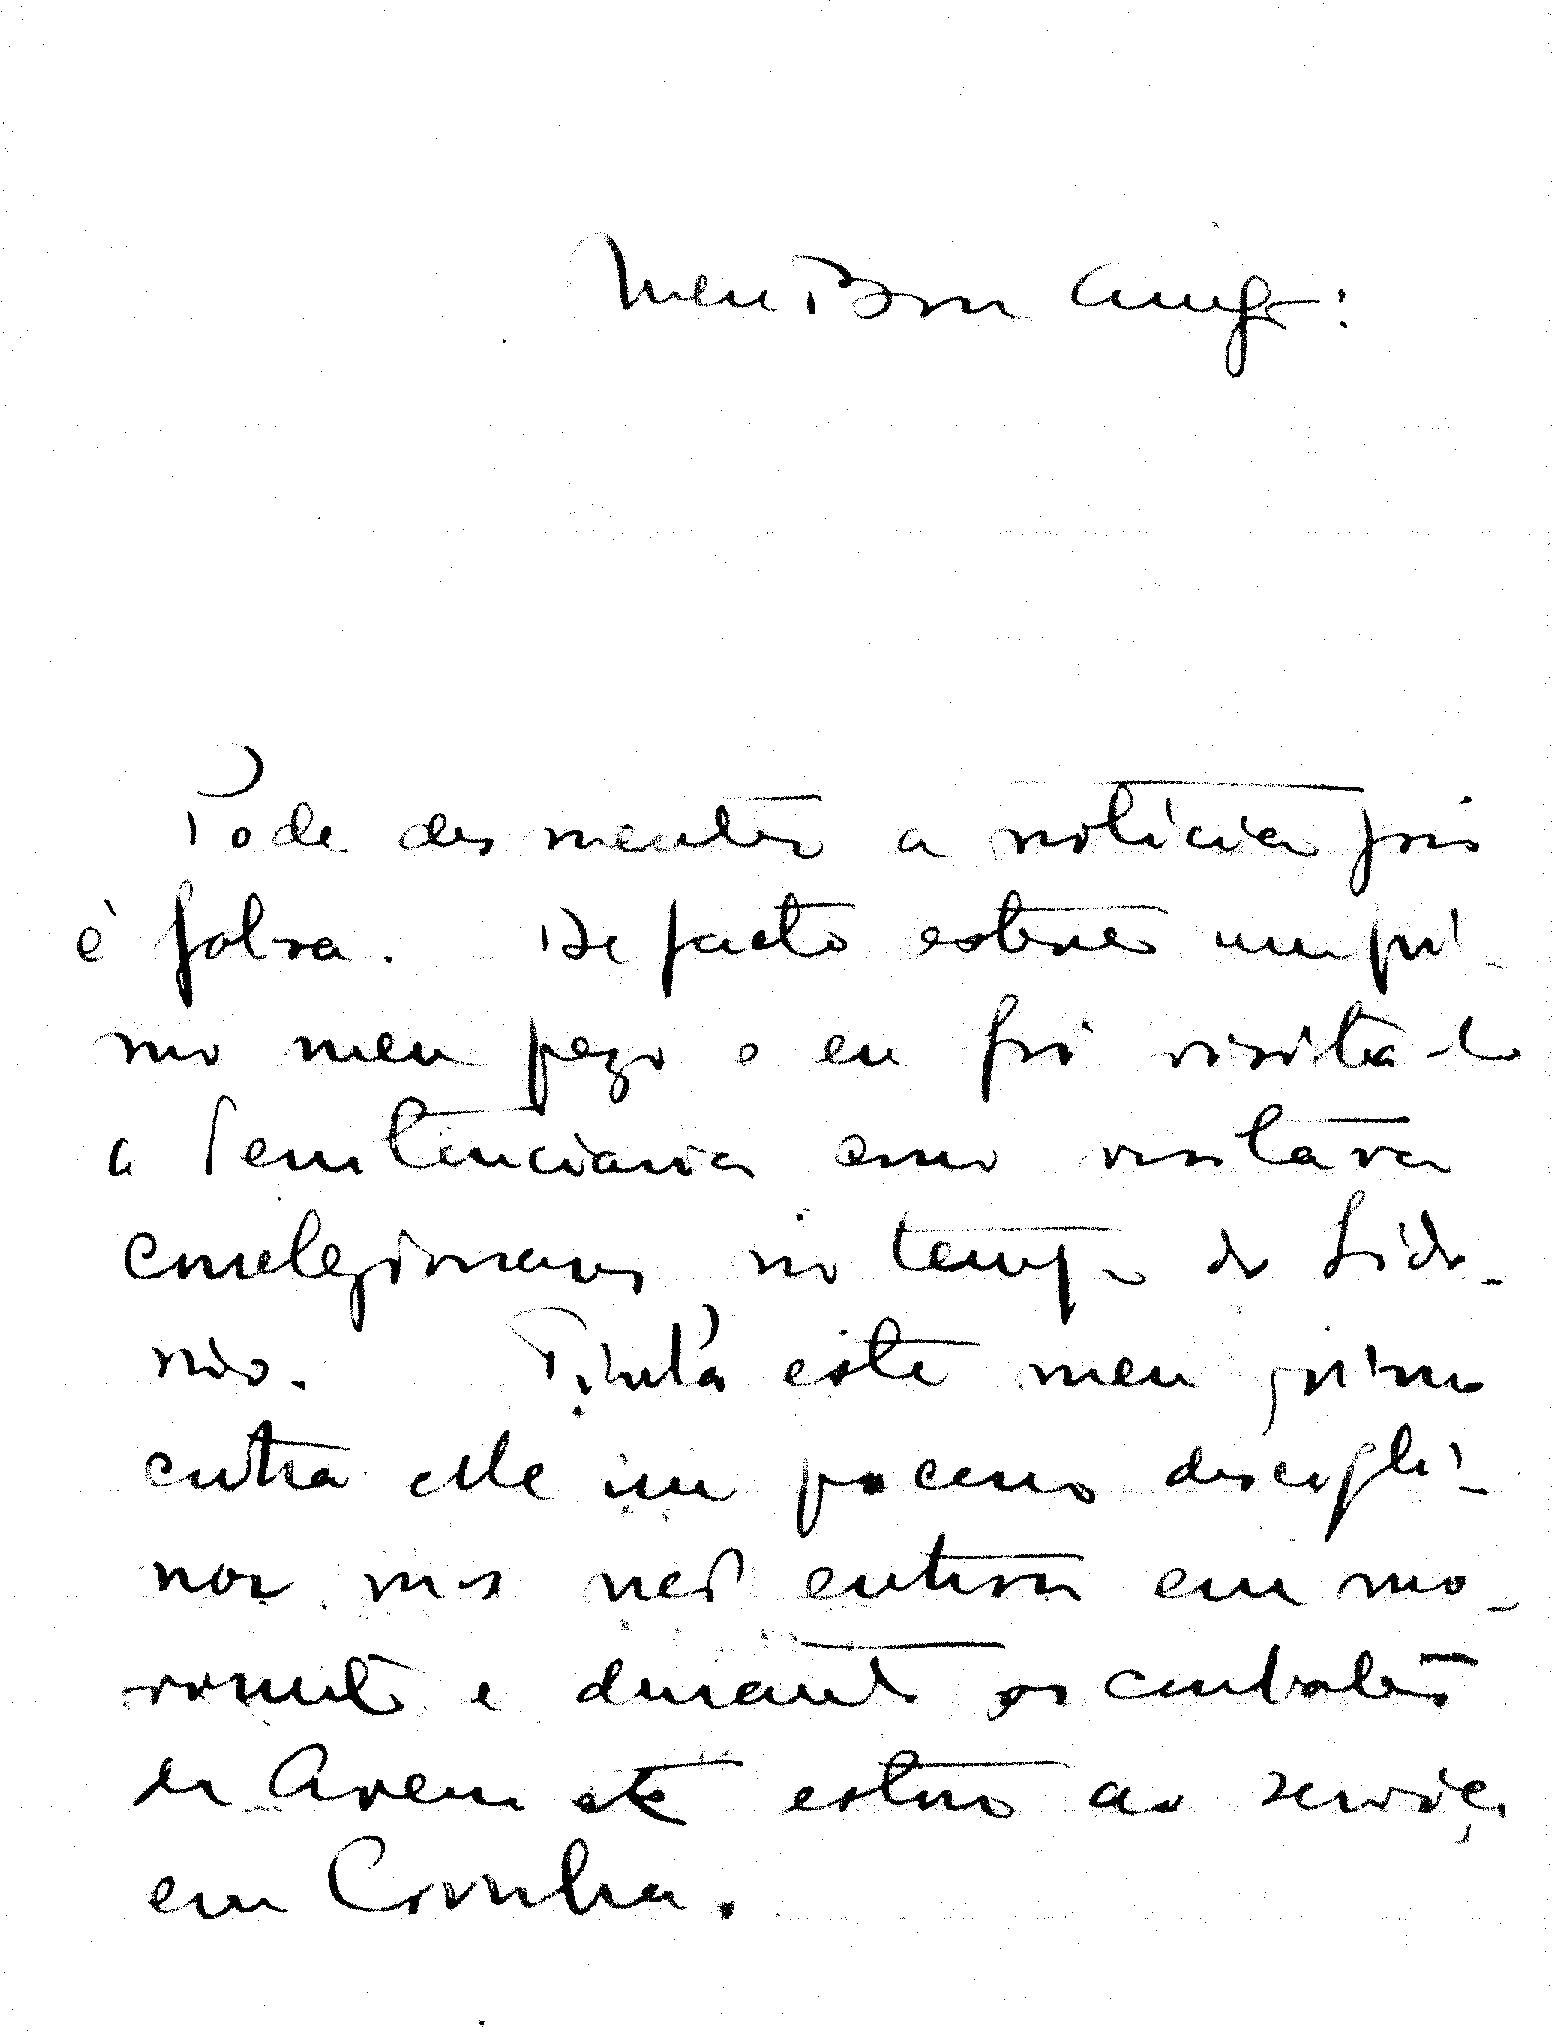 Meu Bom Amigo:
Pode desmentir a noticia pois
é falsa. De facto esteve um pri-
mo meu prezo e eu fui visita-lo
a Penitenciaria como visitava
correlegionarios no tempo do Sido-
nio. Tinha este meu primo
contra elle um processo discipli-
nar mas não entrou em mo-
vimento e durante os combates
de Aveiro até esteve ao serviço
em Coimbra.